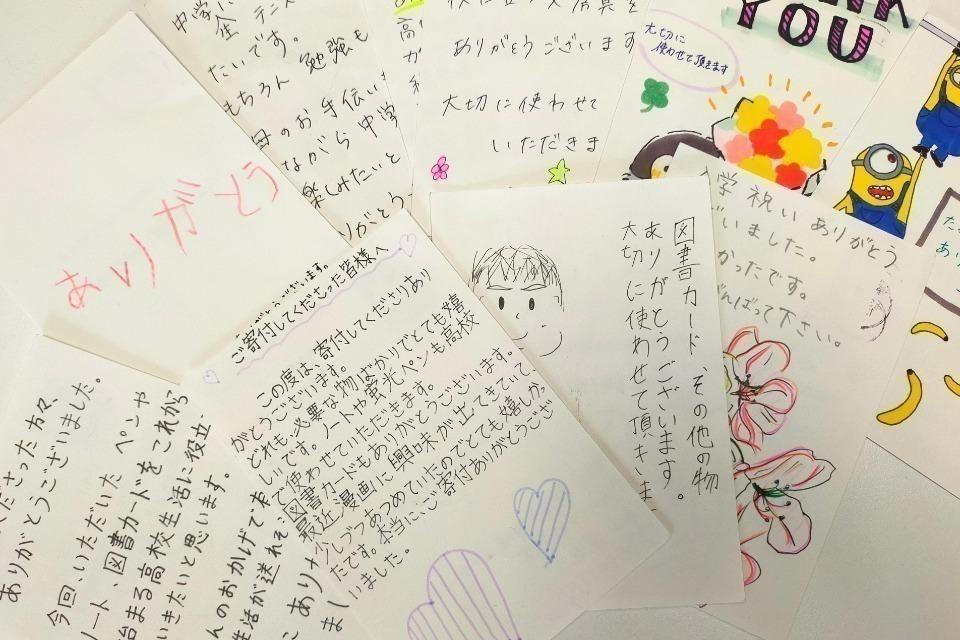 たいです。
もちろん 勉強も
母のお手伝い
ながら中学
楽しみたいと
りがとう
ありがとうございます
大切に使わせて
いただきま
大切に
使わせて頂きます
YOU
ありがとう
ご寄付してくださった皆様へ
この度は、寄付してくださりあり
がとうございます。
どれも必要な物ばかりでとても嬉
しいです。ノートや蛍光ペンも高校
で使わせていただきます。
図書カードもありがとうございます。
最近、漫画に興味が出てきていて、
少しづつあつめていたのでとても嬉しか
たです。本当にご寄付ありがとうござ
いました。
図書カード、その他の物
ありがとうございます。
大切に使わせて頂きいま
学祝いありがとう
いました。
かったです。
がんばって下さい。
ださった方々、
ありがとうございました。
今回、いただいた ペンや
ノート、図書カードをこれから
始まる高校生活に役立
いきたいと思います。
んのおかげで
生活が送れて